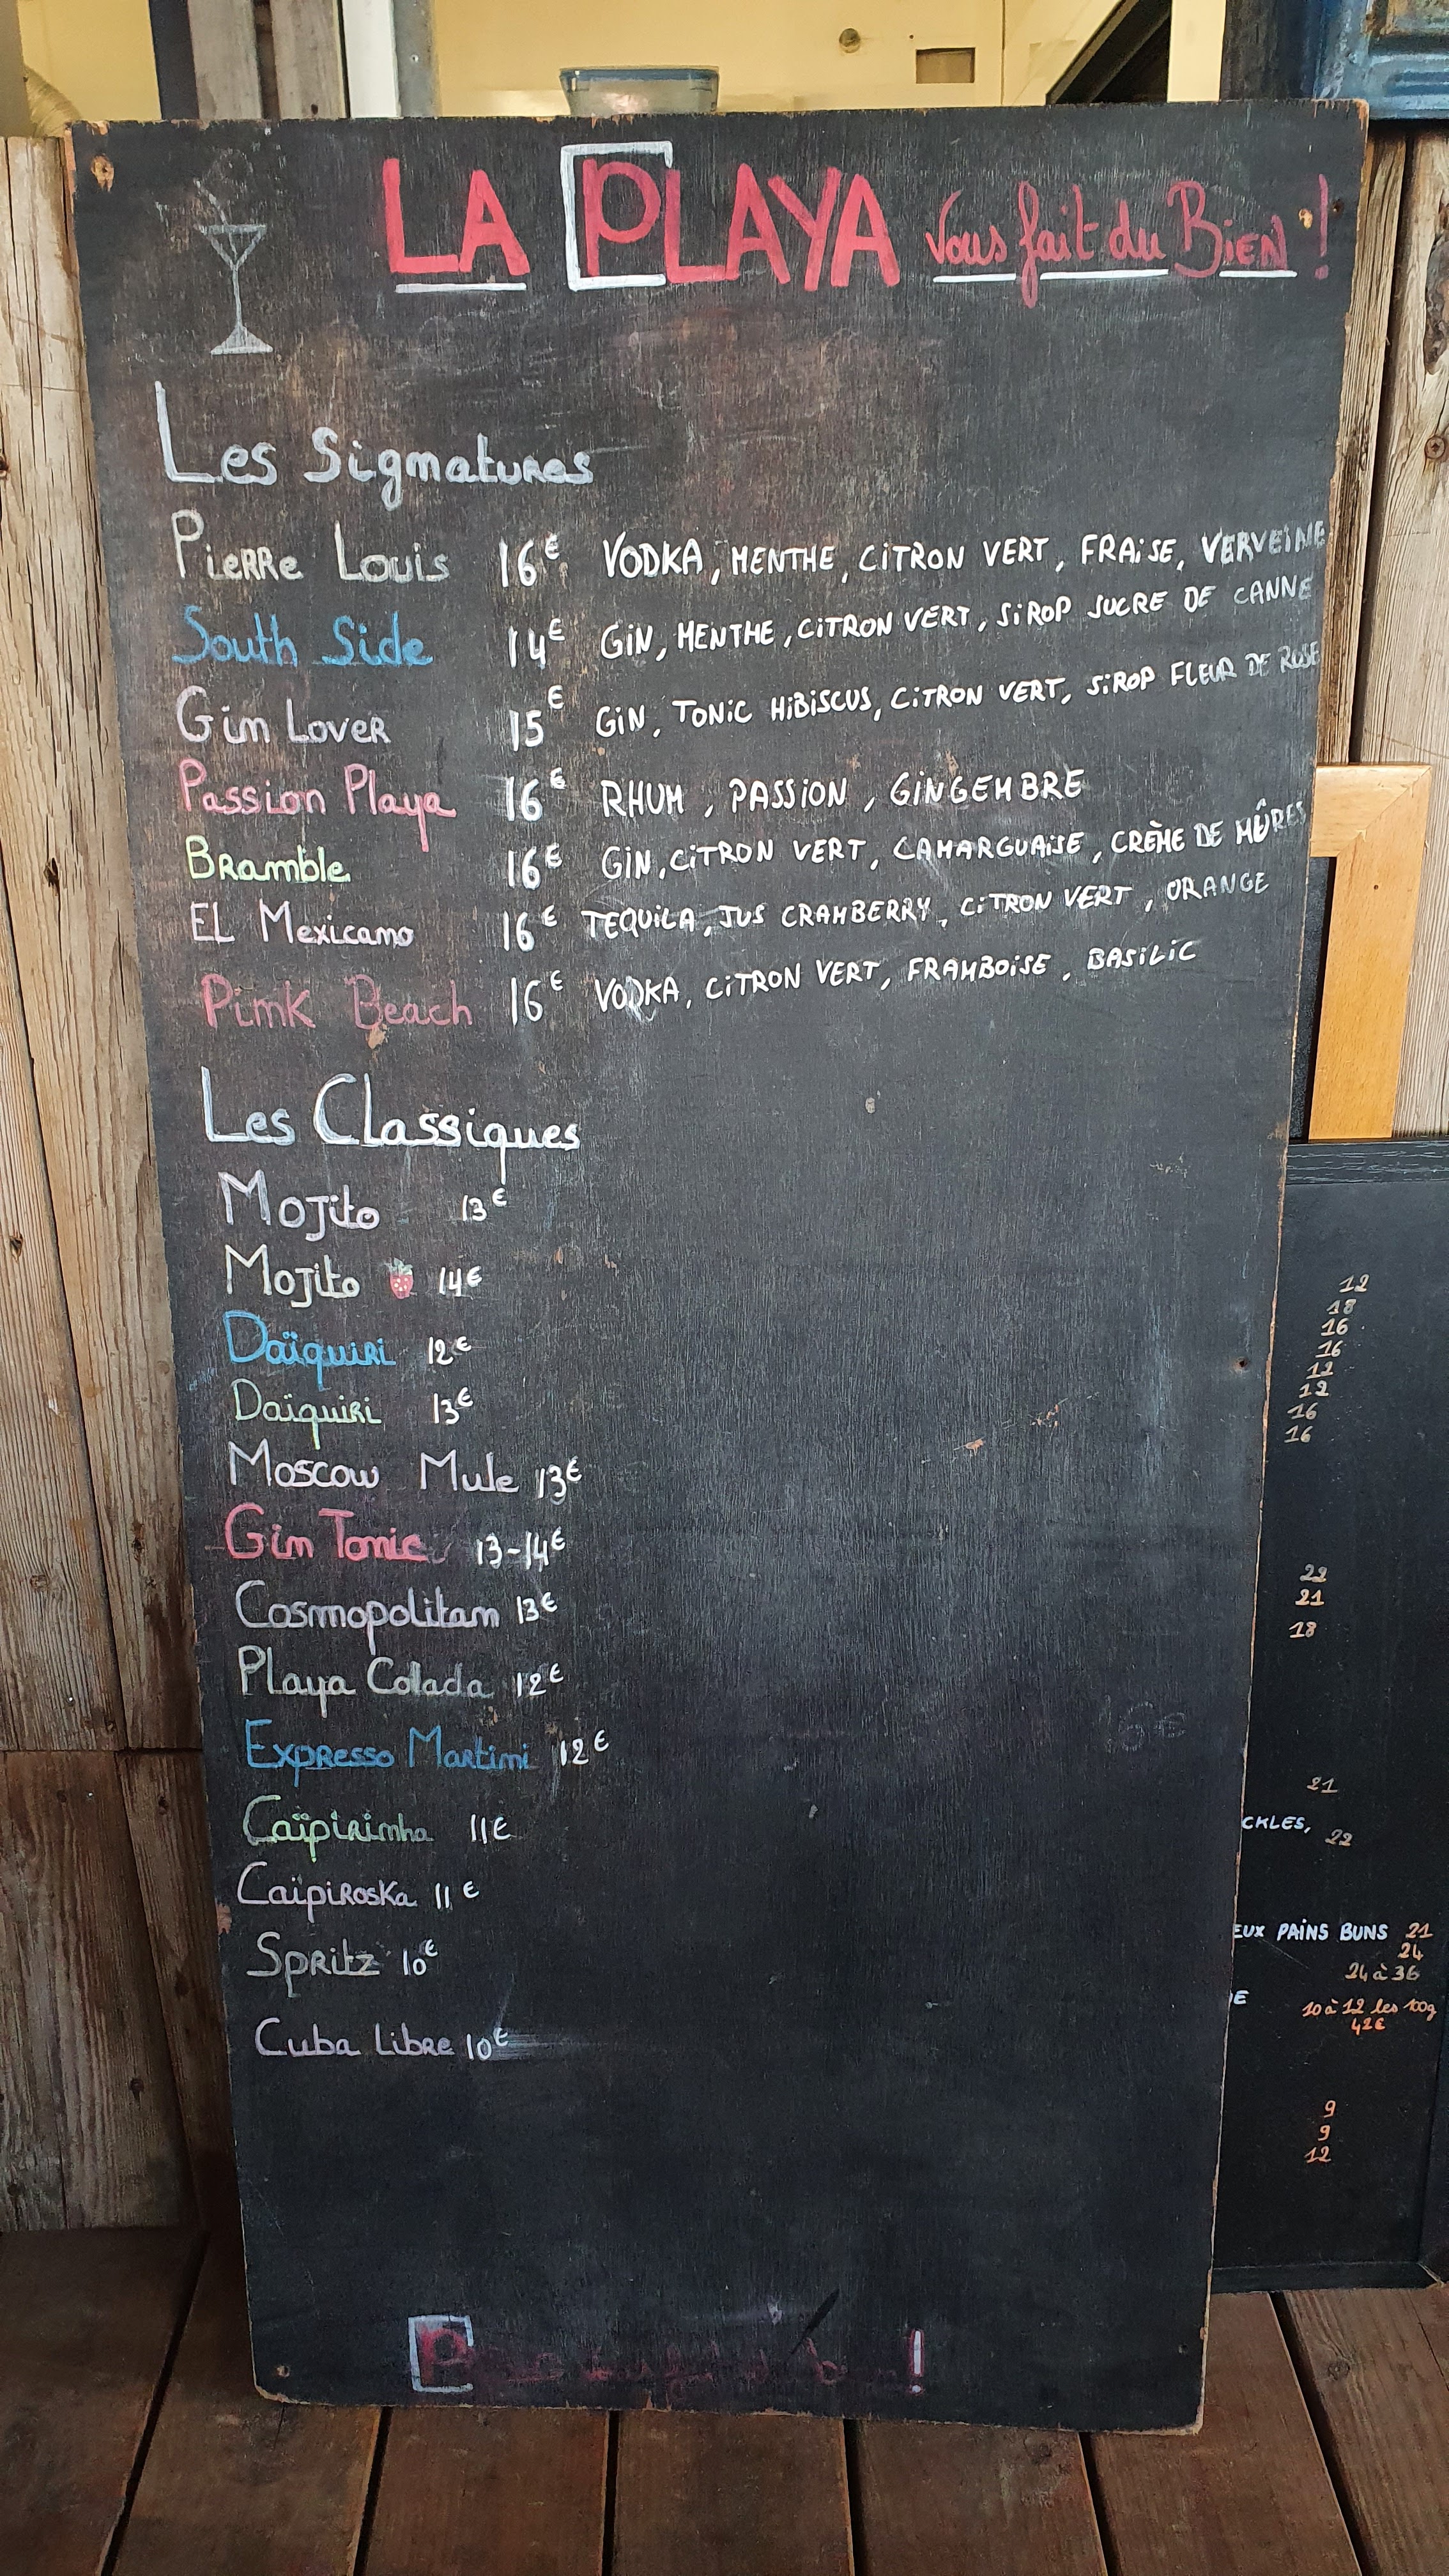 LA PLAYA Vous fait du Bien !
Les Signatures
Pierre Louis 16€ VODKA, MENTHE, CITRON VERT, FRAISE, VERVEINE
South Side 14€ GIN, MENTHE, CITRON VERT, SIROP SUCRE DE CANNE
Gin Lover 15€ GIN, TONIC HIBISCUS, CITRON VERT, SIROP FLEUR DE ROSE
Passion Playa 16€ RHUM, PASSION, GINGEMBRE
Bramble 16€ GIN, CITRON VERT, CAMARGUAISE, CRÈME DE MÛRES
EL Mexicano 16€ TEQUILA, JUS CRAMBERRY, CITRON VERT, ORANGE
Pink Beach 16€ VODKA, CITRON VERT, FRAMBOISE, BASILIC
Les Classiques
Mojito 13€
Mojito 14€
Daïquiri 12€
Daïquiri 13€
Moscow Mule 13€
Gin Tonic 13-14€
Cosmopolitan 13€
Playa Colada 12€
Expresso Martini 12€
Caïpirinha 11€
Caïpiroska 11€
Spritz 10€
Cuba Libre 10€
12
18
16
16
12
12
16
16
22
21
18
21
CKLES, 22
EUX PAINS BUNS 21
24
24 à 36
E 10 à 12 les 100g
42€
9
9
12